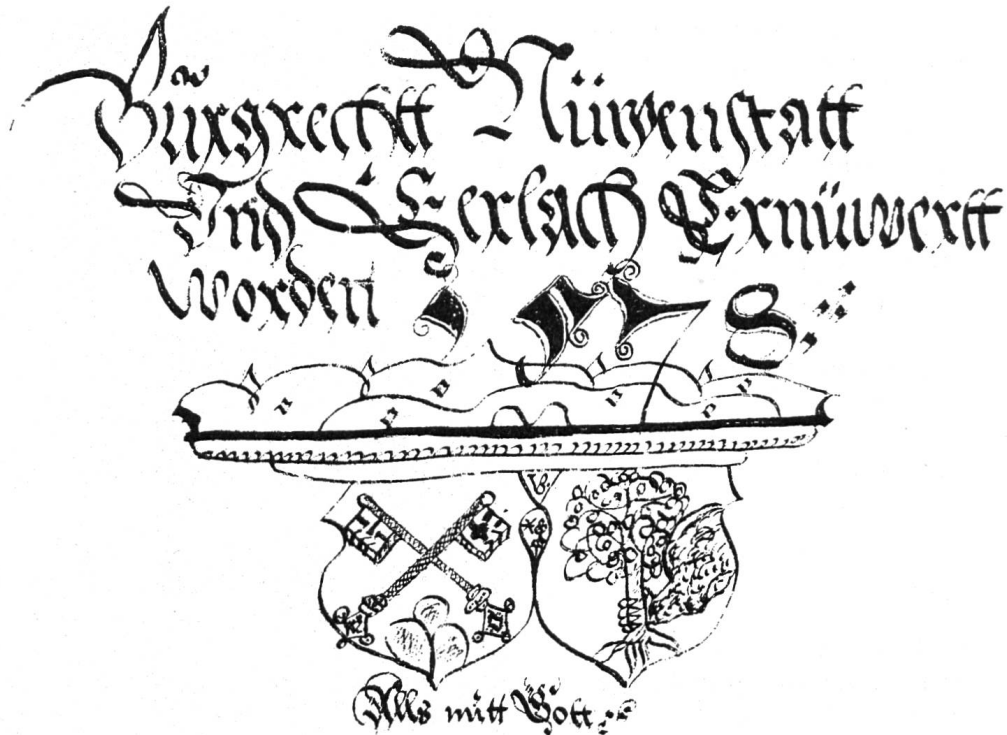 Bůrgrechtt Nüwenstatt
Vnd Eerlach Ernüwertt
worden
Alls mitt Gott